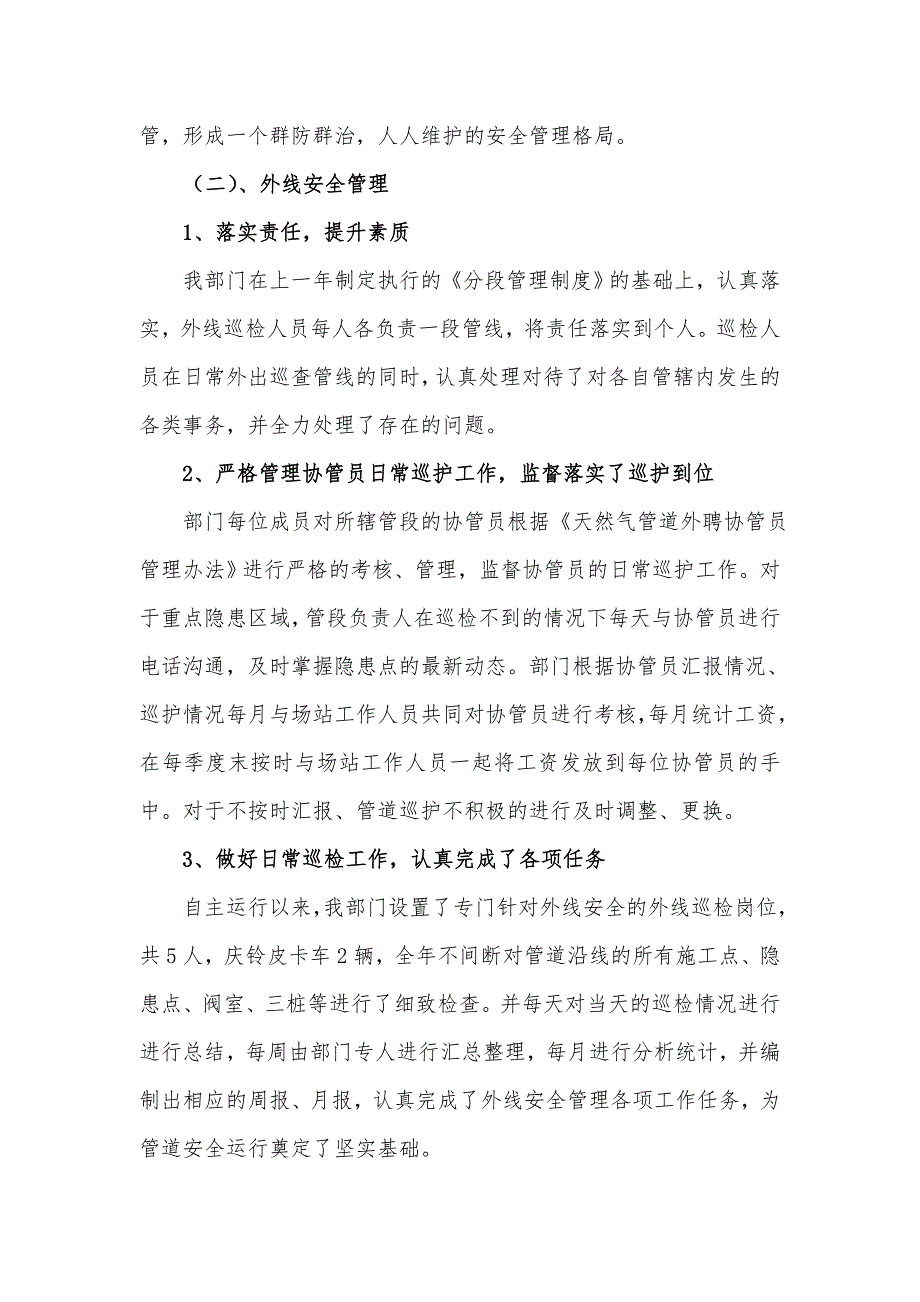 管，形成一个群防群治，人人维护的安全管理格局。
（二）、外线安全管理
1、落实责任，提升素质
我部门在上一年制定执行的《分段管理制度》的基础上，认真落
实，外线巡检人员每人各负责一段管线，将责任落实到个人。巡检人
员在日常外出巡查管线的同时，认真处理对待了对各自管辖内发生的
各类事务，并全力处理了存在的问题。
2、严格管理协管员日常巡护工作，监督落实了巡护到位
部门每位成员对所辖管段的协管员根据《天然气管道外聘协管员
管理办法》进行严格的考核、管理，监督协管员的日常巡护工作。对
于重点隐患区域，管段负责人在巡检不到的情况下每天与协管员进行
电话沟通，及时掌握隐患点的最新动态。部门根据协管员汇报情况、
巡护情况每月与场站工作人员共同对协管员进行考核，每月统计工资，
在每季度末按时与场站工作人员一起将工资发放到每位协管员的手
中。对于不按时汇报、管道巡护不积极的进行及时调整、更换。
3、做好日常巡检工作，认真完成了各项任务
自主运行以来，我部门设置了专门针对外线安全的外线巡检岗位，
共5人，庆铃皮卡车2辆，全年不间断对管道沿线的所有施工点、隐
患点、阀室、三桩等进行了细致检查。并每天对当天的巡检情况进行
进行总结，每周由部门专人进行汇总整理，每月进行分析统计，并编
制出相应的周报、月报，认真完成了外线安全管理各项工作任务，为
管道安全运行奠定了坚实基础。